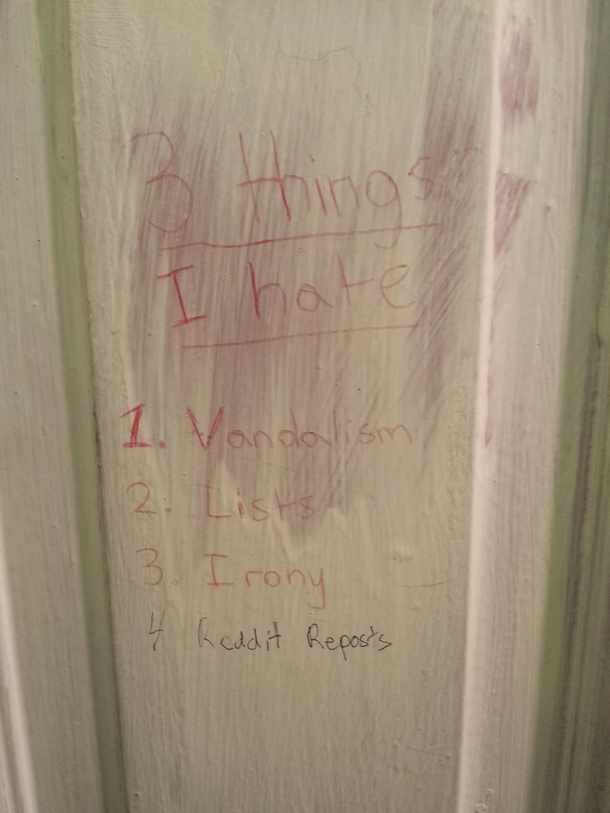 3 things
I hate
1. Vandalism
2. Lists
3. Irony
4 Reddit Reposts